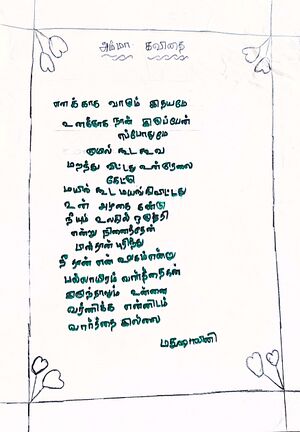 அம்மா கவிதை
எனக்காக வாழும் இதயமே
உனக்காக நான் இருப்பேன்
எப்போதுமே
குயில் கூட கூவ
மறந்து விட்டது உன் குரலை
கேட்டு
மயில் கூட மயங்கிவிட்டது
உன் அழகை கண்டு
நீயும் உலகில் ஒருத்தி
என்று நினைத்தேன்
பின்தான் புரிந்து
நீ தான் என் உலகம் என்று
பல்லாயிரம் வார்த்தைகள்
இருந்தாலும் உன்னை
வர்ணிக்க என்னிடம்
வார்த்தை இல்லை